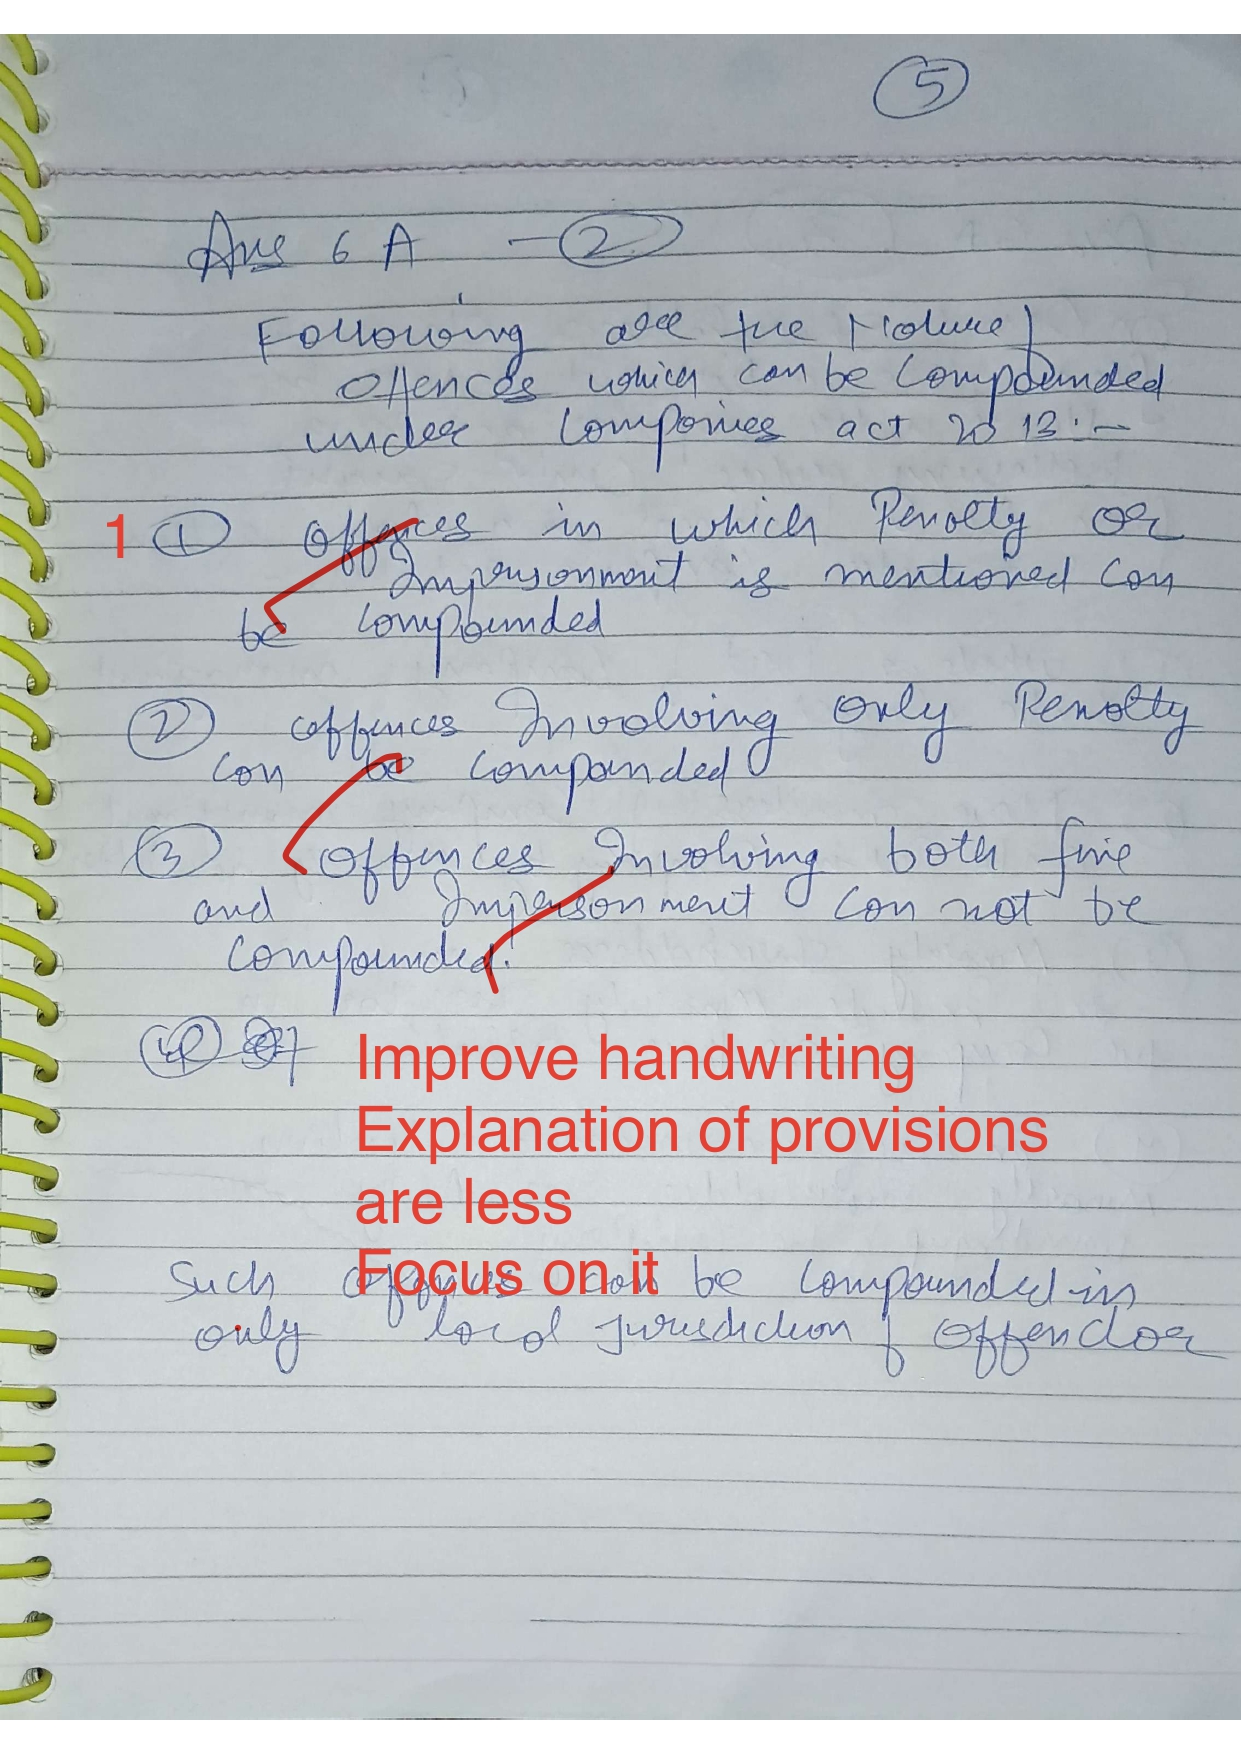 5
Ans 6 A - 2
Following are the Nature of
offences which can be compounded
under Companies act 2013:-
1 1 Offences in which Penalty or
Imprisonment is mentioned can
be compounded
2 offences Involving Only Penalty
can be compounded
3 Offences Involving both fine
and Imprisonment can not be
compounded.
Improve handwriting
Explanation of provisions
are less
Focus on it
Such offences can be compounded in
only local jurisdiction of offendor